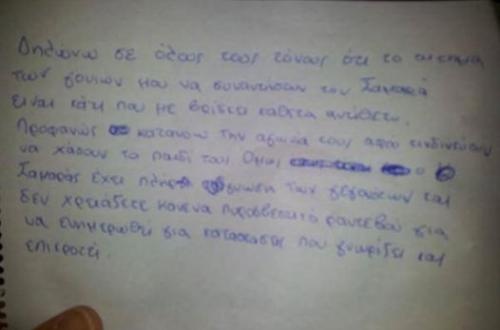 Δηλώνω σε όλους τους τόνους ότι το αίτημα
των γονιών μου να συναντήσουν τον Σαμαρά
είναι κάτι που με βρίσκει κάθετα αντίθετο.
Προφανώς κατανοώ την αγωνία τους αφού κινδυνεύουν
να χάσουν το παιδί τους Όμως ο
Σαμαράς έχει πλήρη γνώση των γεγονότων και
δεν χρειάζετε κανένα πυροσβεστικό ραντεβού για
να ενημερωθεί για καταστάσεις που γνωρίζει και
επικροτεί.